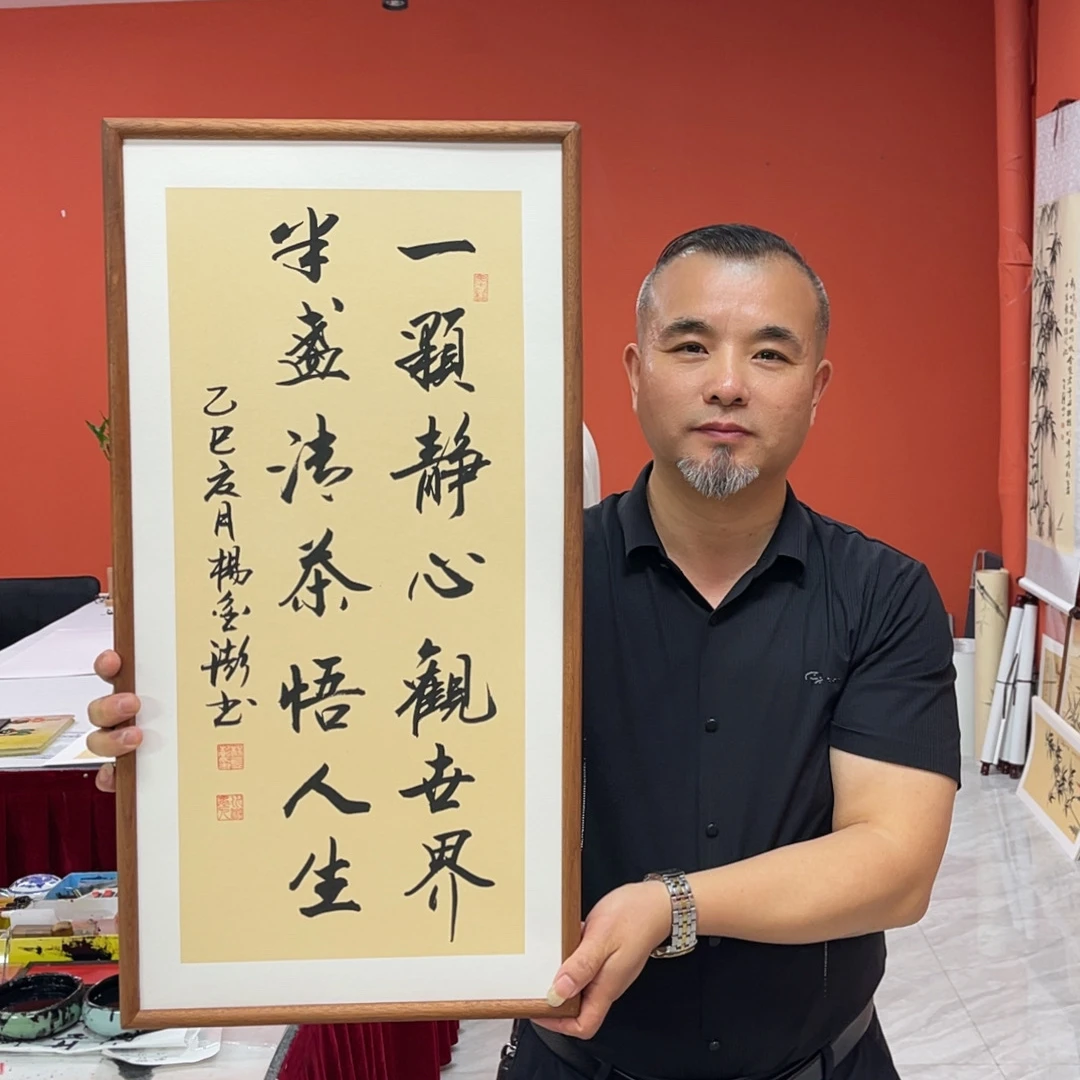 一顆静心觀世界
半盏清茶悟人生
乙巳夏月楊金澎书